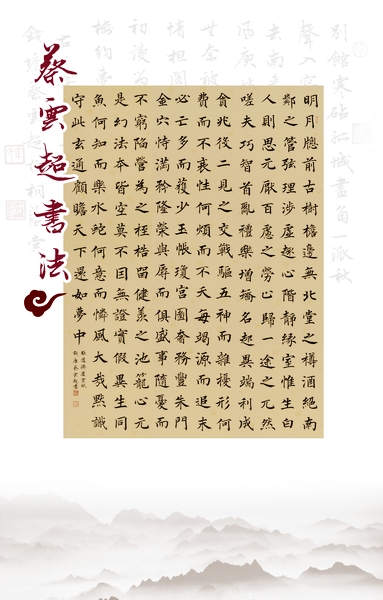 別館寒砧孤城畫角一派秋
明月牕前古樹檐邊無北堂之樽酒絕南
鄰之管弦理涉虛趣心階靜緣室惟生白
人則思元厭百慮之勞心歸一途之兀然
嗟夫巧智首亂禮樂增矯名起異端利成
貪兆後二見之交戰驅五神而雜擾形何
費而不衰性何煩而不夭每竭源而追末
必亡多而獲少玉帳瓊宮圖奢務豐朱門
金穴恃滿矜隆榮與辱而俱盛事隨憂而
不窮陷營為之桎梏留健羨之池籠心元
是幻法本皆空莫不因無證實假異生同
魚何知而樂水蛇何意而憐風大哉默識
守此玄通顧瞻天下還如夢中
蔡雲超書法